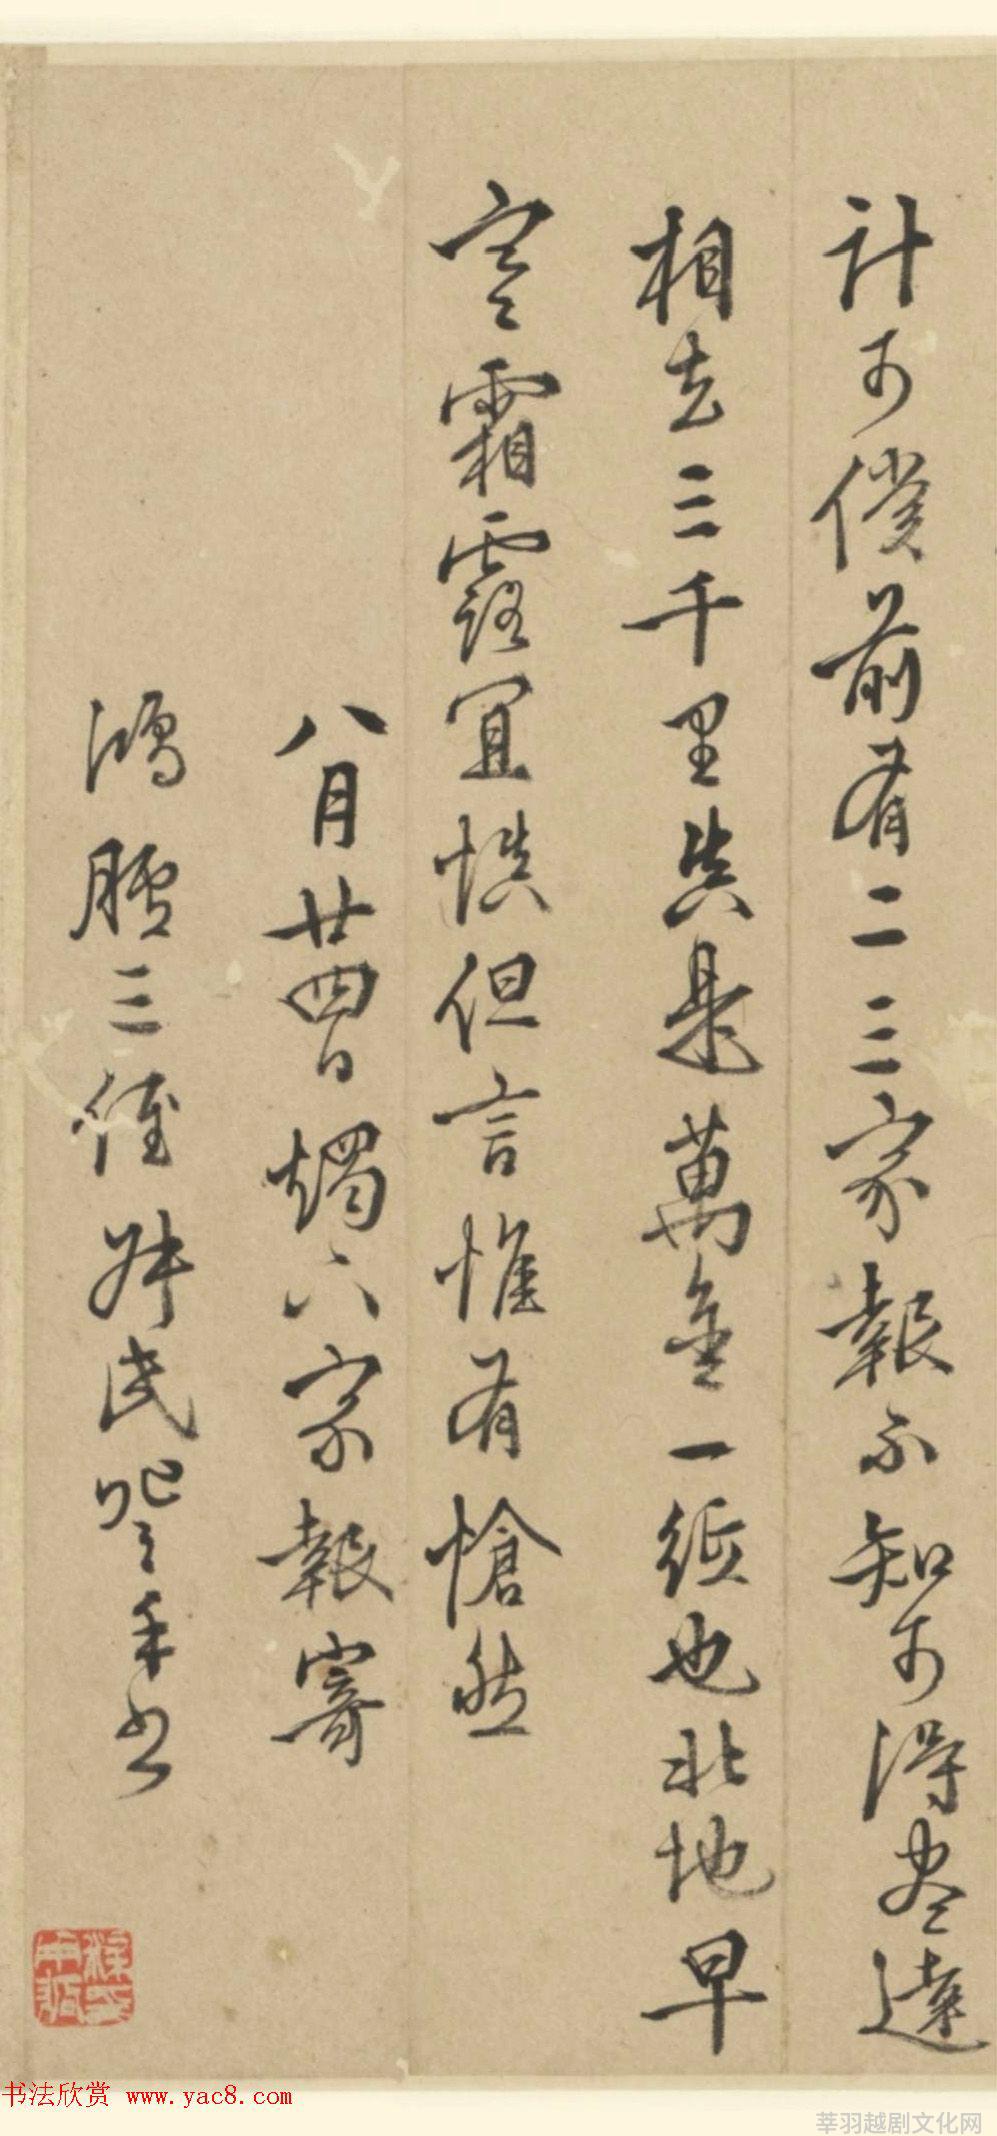 計可僕前有二三家報不知可得盡達
相去三千里真是萬金一紙也北地早
寒霜露宜慎但言惟有愴然
八月廿四日燭下家報寄
鴻臚三侄 手書
书法欣赏 www.yac8.com
莘羽越剧文化网